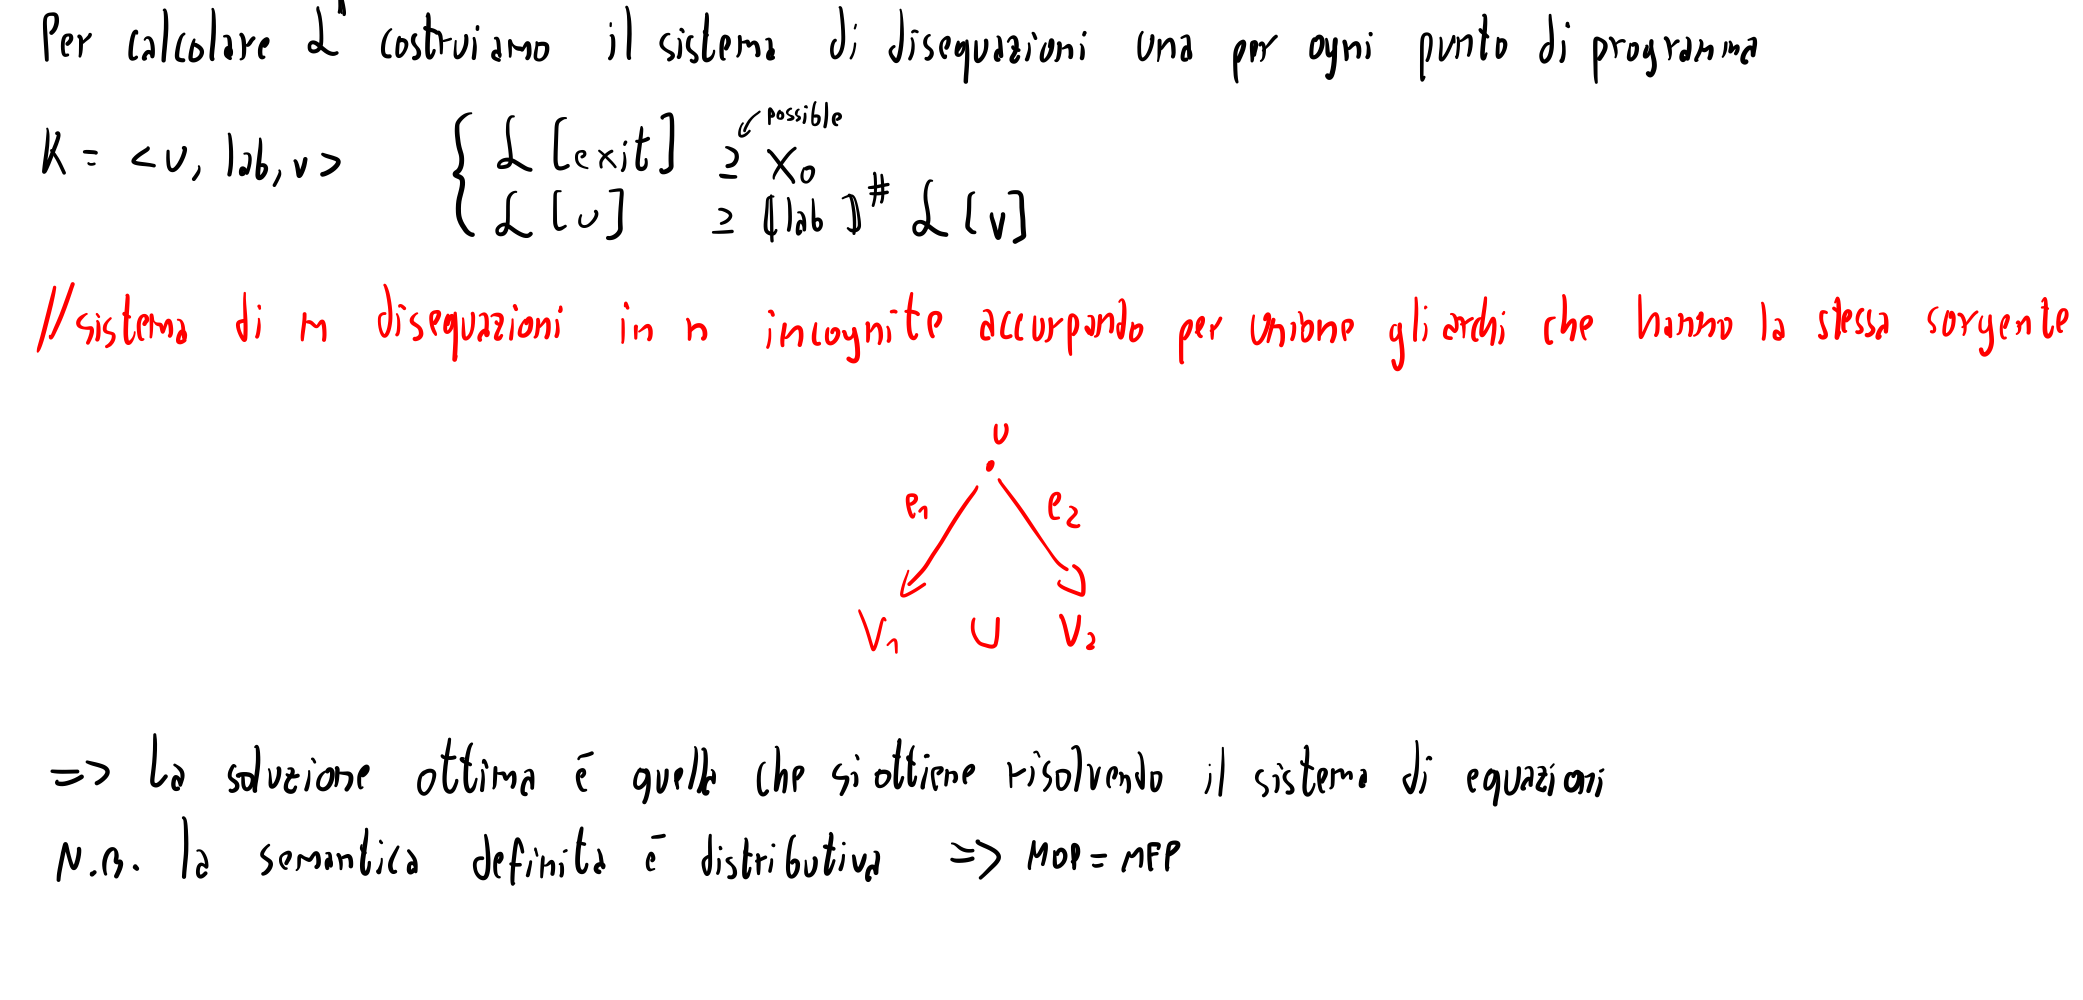 Per calcolare L* costruiamo il sistema di disequazioni una per ogni punto di programma
possible
K = <u, lab, v> { L [exit] ⊇ X0
L [u] ⊇ ⟦lab⟧# L [v]
//sistema di m disequazioni in n incognite accurpando per unione gli archi che hanno la stessa sorgente
u
e1 e2
V1 U V2
=> La soluzione ottima è quella che si ottiene risolvendo il sistema di equazioni
N.B. la semantica definita è distributiva => MOP = MFP